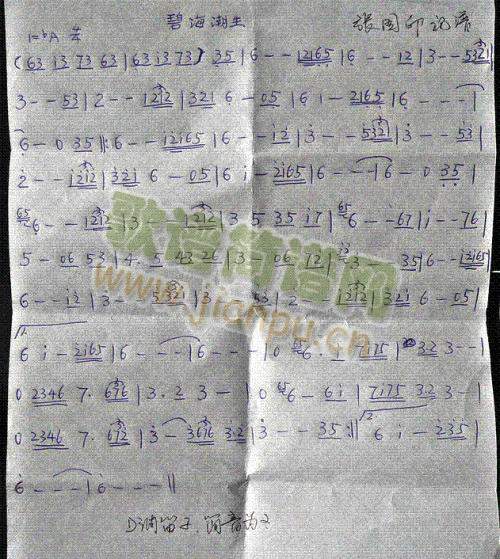 碧海潮生
1=bA
(63 13 73 63|63 13 73)35|6--12165|6--12|3--5321|
3--53|2--1212|321 6-05|6 1-2165|6---|
6-0 35||:6--12165|6--12|3--5321|3--53|
2--1212|321 6-05|6 1-2165|6---|6-0 35|
65 6--1212|3 1212|3 5 35 17|65 6--67|1--76|
5-06 53|4. 5 43 26|3-06 72| 3 35|6--12165|
6--12|3-5321|3 53|2--1212|321 6-05|
1. 6 1-2165|6---|6---|0 65 6. 7175|323--|
0 2346 7. 676|3.2 3-|0 65 6-61|7175 3.2 3-|
0 2346 7. 672|3-3676 3.2|3--35:||2 6 1-235|
6---|6---||
歌谱简谱网
www.jianpu.cn